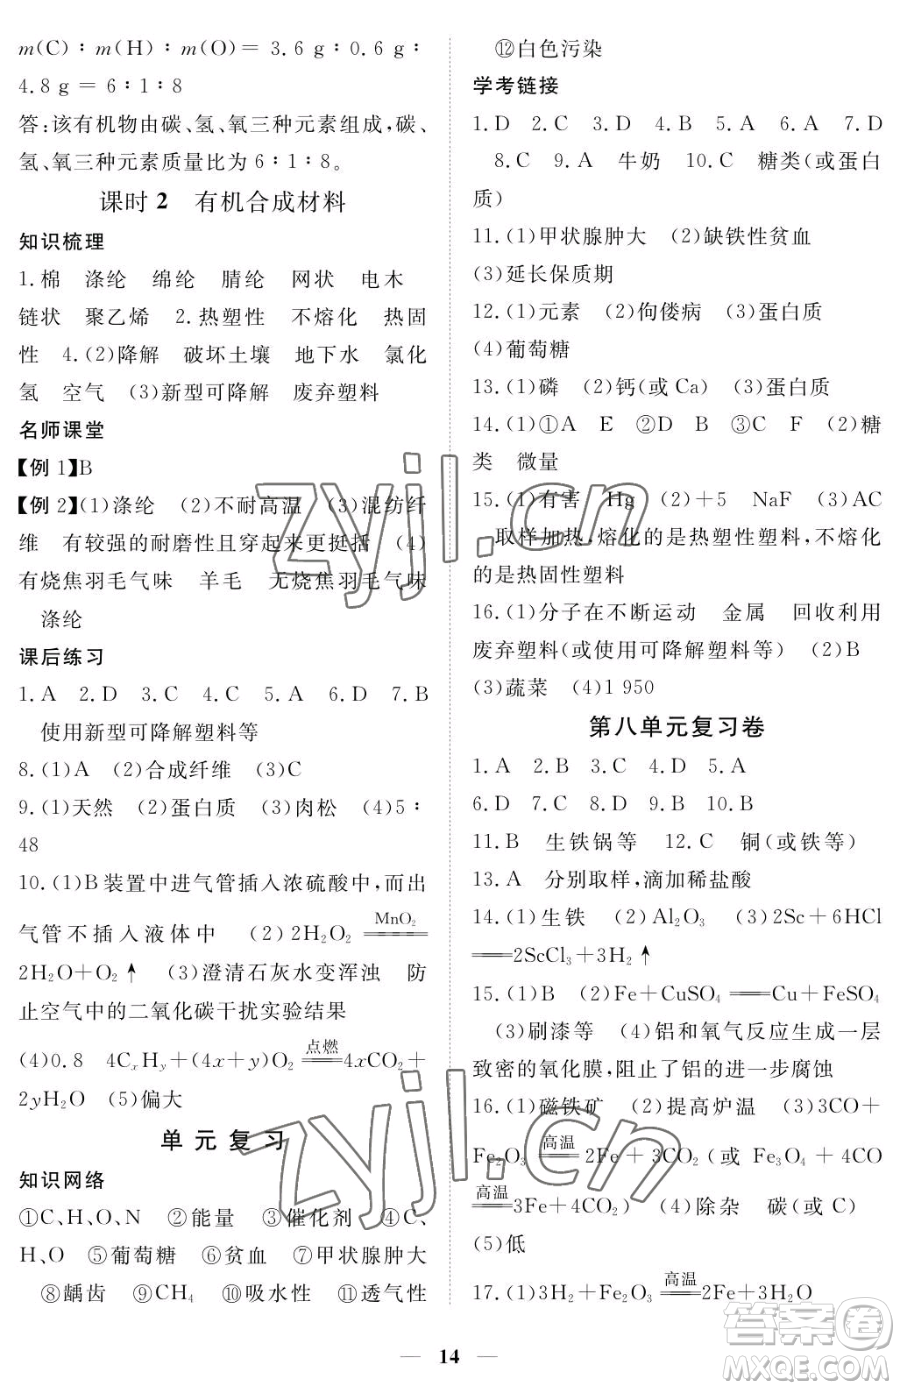 m(C)∶m(H)∶m(O)=3.6 g∶0.6 g∶
4.8 g=6∶1∶8
答:该有机物由碳、氢、氧三种元素组成,碳、
氢、氧三种元素质量比为6∶1∶8。
课时2 有机合成材料
知识梳理
1.棉 涤纶 绵纶 腈纶 网状 电木
链状 聚乙烯 2.热塑性 不熔化 热固
性 4.(2)降解 破坏土壤 地下水 氯化
氢 空气 (3)新型可降解 废弃塑料
名师课堂
【例1】B
【例2】(1)涤纶 (2)不耐高温 (3)混纺纤
维 有较强的耐磨性且穿起来更挺括 (4)
有烧焦羽毛气味 羊毛 无烧焦羽毛气味
涤纶
课后练习
1.A 2.D 3.C 4.C 5.A 6.D 7.B
使用新型可降解塑料等
8.(1)A (2)合成纤维 (3)C
9.(1)天然 (2)蛋白质 (3)肉松 (4)5∶
48
10.(1)B装置中进气管插入浓硫酸中,而出
气管不插入液体中 (2)2H₂O₂ ══MnO₂══
2H₂O+O₂↑ (3)澄清石灰水变浑浊 防
止空气中的二氧化碳干扰实验结果
(4)0.8 4CₓHᵧ+(4x+y)O₂ ══点燃══ 4xCO₂+
2yH₂O (5)偏大
单元复习
知识网络
①C、H、O、N ②能量 ③催化剂 ④C、
H、O ⑤葡萄糖 ⑥贫血 ⑦甲状腺肿大
⑧龋齿 ⑨CH₄ ⑩吸水性 ⑪透气性
⑫白色污染
学考链接
1.D 2.C 3.D 4.B 5.A 6.A 7.D
8.C 9.A 牛奶 10.C 糖类(或蛋白
质)
11.(1)甲状腺肿大 (2)缺铁性贫血
(3)延长保质期
12.(1)元素 (2)佝偻病 (3)蛋白质
(4)葡萄糖
13.(1)磷 (2)钙(或Ca) (3)蛋白质
14.(1)①A E ②D B ③C F (2)糖
类 微量
15.(1)有害 Hg (2)+5 NaF (3)AC
取样加热,熔化的是热塑性塑料,不熔化
的是热固性塑料
16.(1)分子在不断运动 金属 回收利用
废弃塑料(或使用可降解塑料等) (2)B
(3)蔬菜 (4)1 950
第八单元复习卷
1.A 2.B 3.C 4.D 5.A
6.D 7.C 8.D 9.B 10.B
11.B 生铁锅等 12.C 铜(或铁等)
13.A 分别取样,滴加稀盐酸
14.(1)生铁 (2)Al₂O₃ (3)2Sc+6HCl
══2ScCl₃+3H₂↑
15.(1)B (2)Fe+CuSO₄══Cu+FeSO₄
(3)刷漆等 (4)铝和氧气反应生成一层
致密的氧化膜,阻止了铝的进一步腐蚀
16.(1)磁铁矿 (2)提高炉温 (3)3CO+
Fe₂O₃ ══高温══ 2Fe+3CO₂(或Fe₃O₄+4CO
══高温══ 3Fe+4CO₂) (4)除杂 碳(或C)
(5)低
17.(1)3H₂+Fe₂O₃ ══高温══ 2Fe+3H₂O
14
zyjl.cn
zyjl.cn
答案圈
MXQE.COM